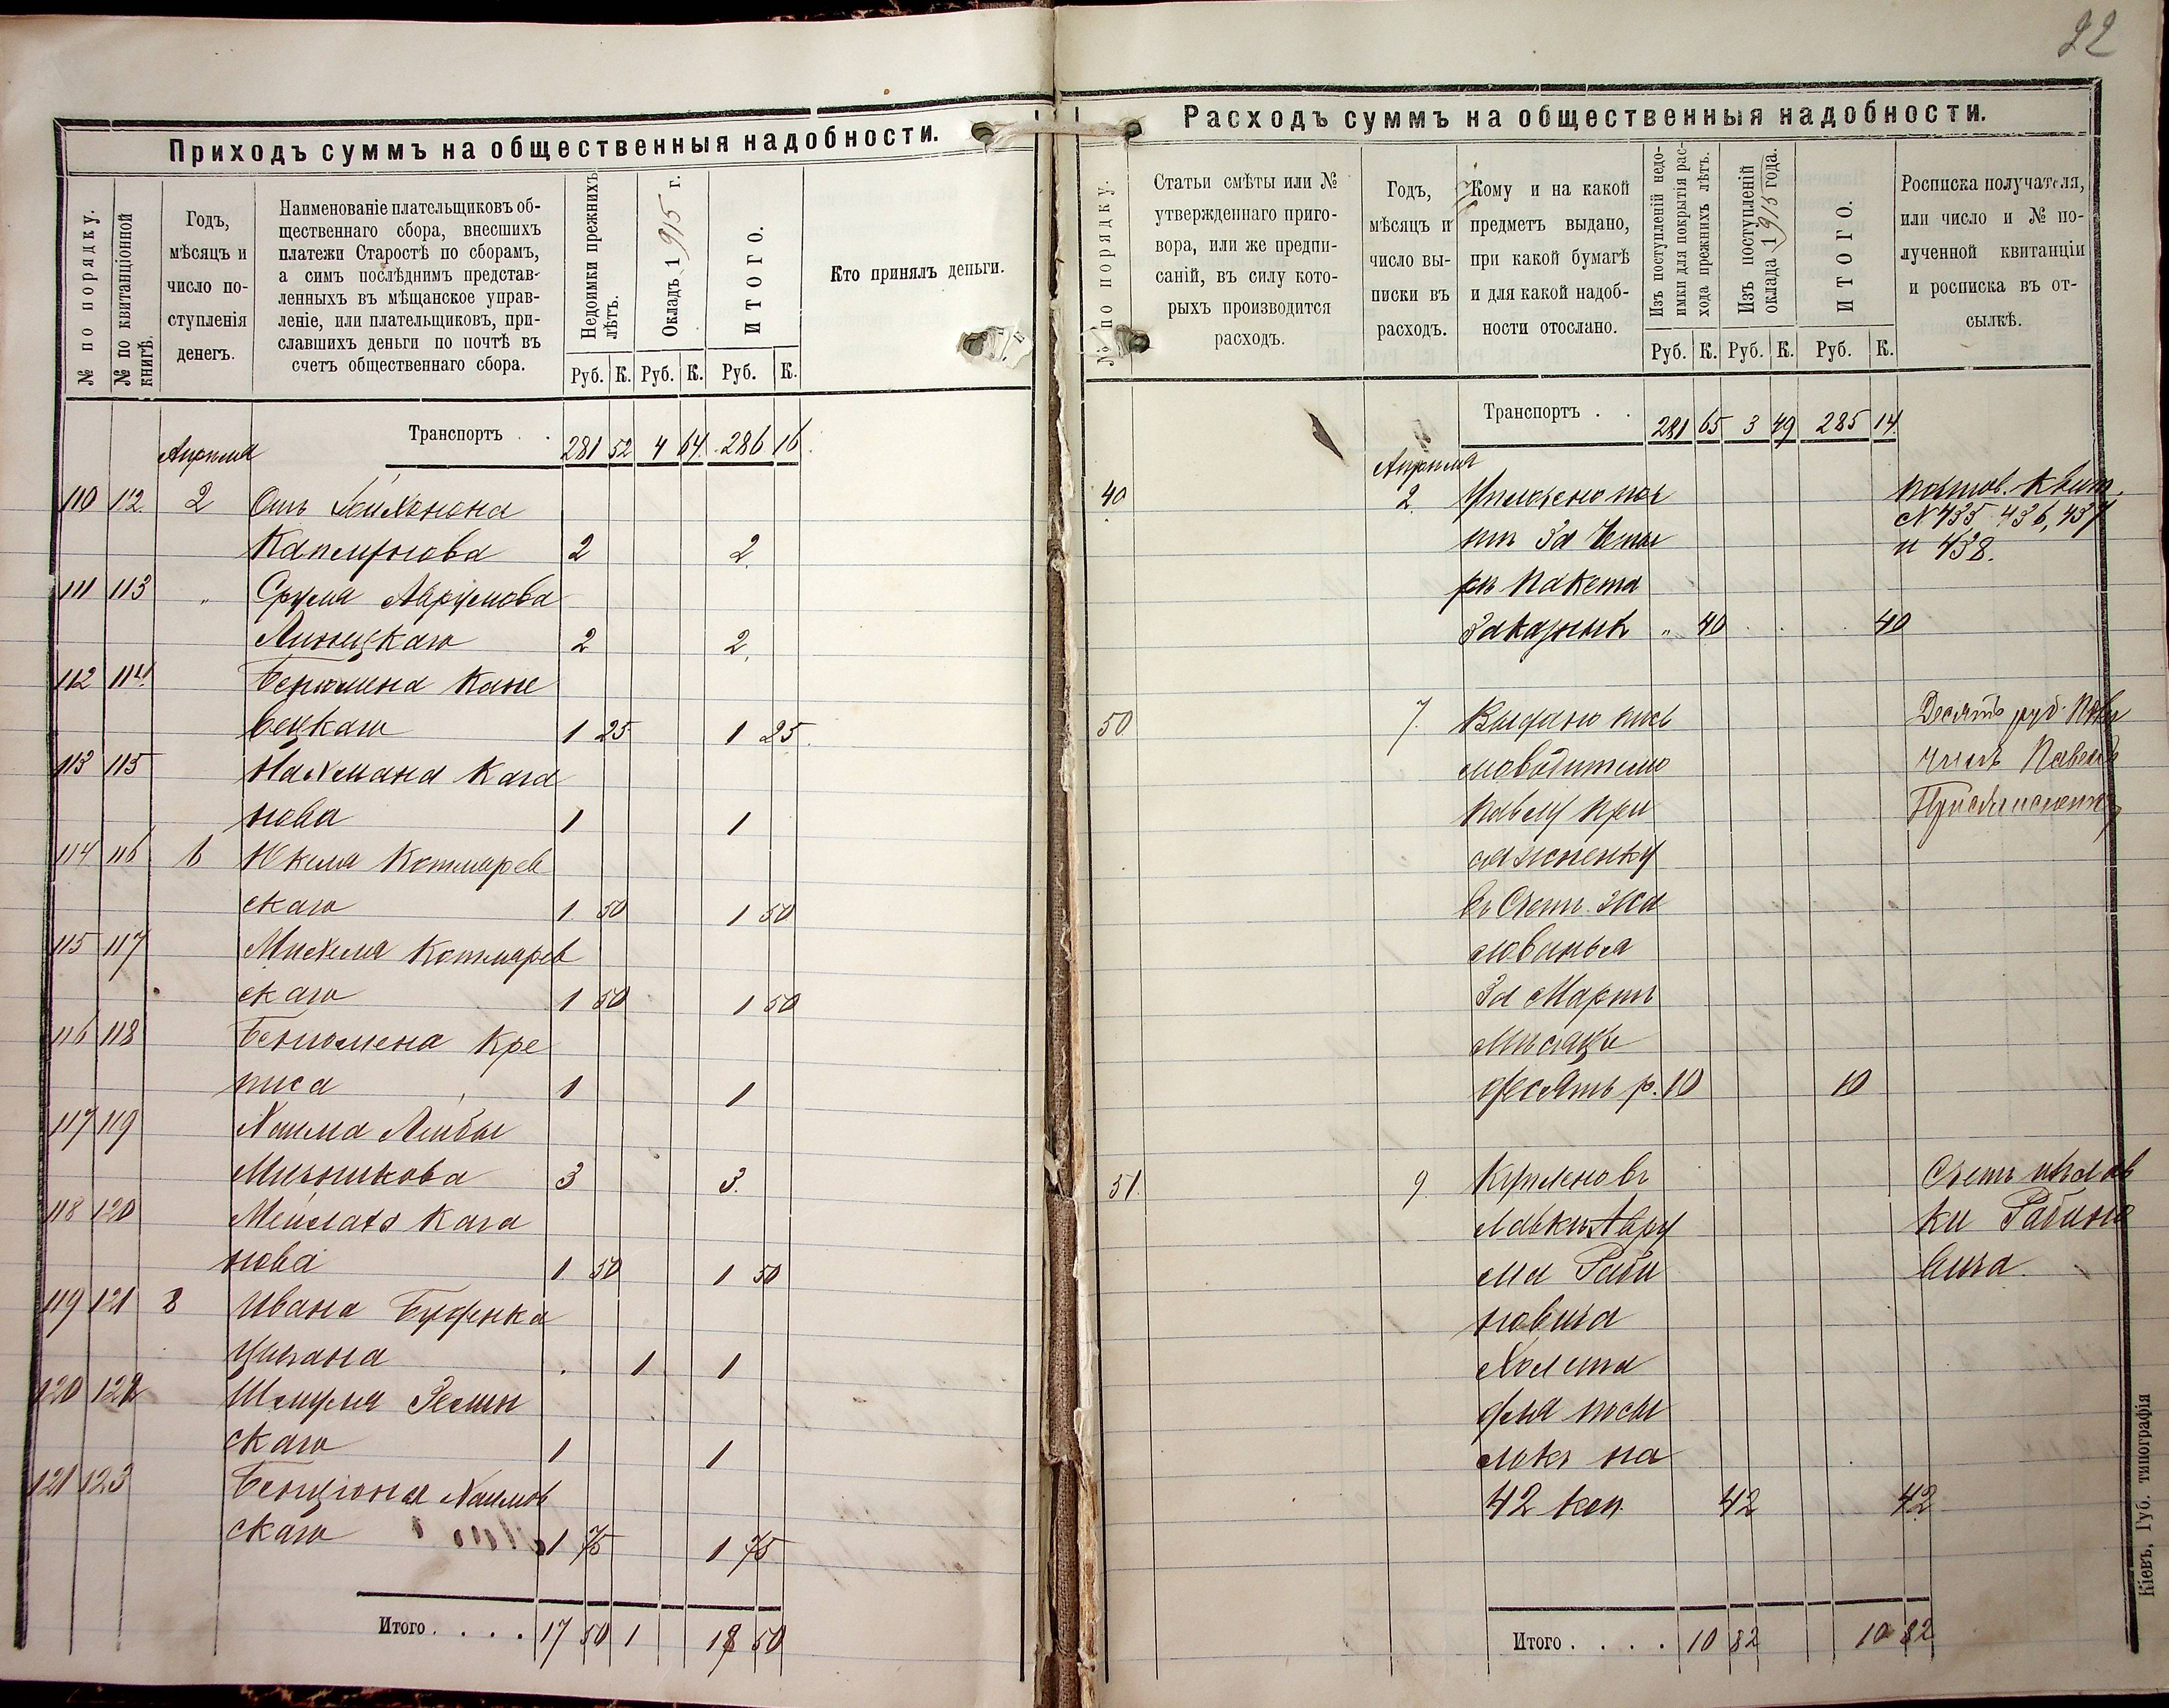 22
Приходъ суммъ на общественныя надобности.
№ по порядку.
№ по квитанціонной
книгѣ.
Годъ,
мѣсяцъ и
число по-
ступленія
денегъ.
Наименованіе плательщиковъ об-
щественнаго сбора, внесшихъ
платежи Старостѣ по сборамъ,
а симъ послѣднимъ представ-
ленныхъ въ мѣщанское управ-
леніе, или плательщиковъ, при-
славшихъ деньги по почтѣ въ
счетъ общественнаго сбора.
Недоимки прежнихъ
лѣтъ.
Окладъ 1915 г.
ИТОГО.
Кто принялъ деньги.
Руб. К. Руб. К. Руб. К.
Транспортъ . . 281 52 4 64 286 16
Апреля
110 112 2 Отъ
2 2
111 113 " Срула
2 2
112 114 Беньомена Кане
вецкаго 1 25 1 25
113 115 Нахмана Кага
нова 1 1
114 116 6 Юкеля Котляров
скаго 1 50 1 50
115 117 Михеля Котляров
скаго 1 50 1 50
116 118 Беньомена Кре
писа 1 1
117 119 Хаима Лейбы
Мильникова 3 3
118 120 Кага
нова 1 50 1 50
119 121 8 Ивана Буденка
1 1
120 122 Шмуля Зелин
скаго 1 1
121 123 Бенціона Хаимов
скаго 1 75 1 75
Итого . . . . 17 50 1 18 50
Расходъ суммъ на общественныя надобности.
№ по порядку.
Статьи смѣты или №
утвержденнаго приго-
вора, или же предпи-
саній, въ силу кото-
рыхъ производится
расходъ.
Годъ,
мѣсяцъ и
число вы-
писки въ
расходъ.
Кому и на какой
предметъ выдано,
при какой бумагѣ
и для какой надоб-
ности отослано.
Изъ поступленій недо-
имки для покрытія рас-
хода прежнихъ лѣтъ.
Изъ поступленій
оклада 1915 года.
ИТОГО.
Росписка получателя,
или число и № по-
лученной квитанціи
и росписка въ от-
сылкѣ.
Руб. К. Руб. К. Руб. К.
Транспортъ . . 281 65 3 49 285 14
Апреля
40 2 Уплочено поч почтов. Квит.
тѣ за Четы № 435, 436, 437
ре пакета и 438.
Заказныхъ " 40 40
50 7 Выдано пись Десять руб. Полу
моводителю чилъ Павелъ
Павлу При
сяжненку
въ Счетъ Жа
лованья
За Мартъ
Месяцъ
десять р. 10 10
51 9 Купленовъ Счетъ изъ лав
лавки Абру ки Рабино
ма Раби вича.
новича
Холста
для посы
локъ на
42 коп. 42 42
Итого . . . . 10 82 10 82
Кіевъ, Губ. типографія